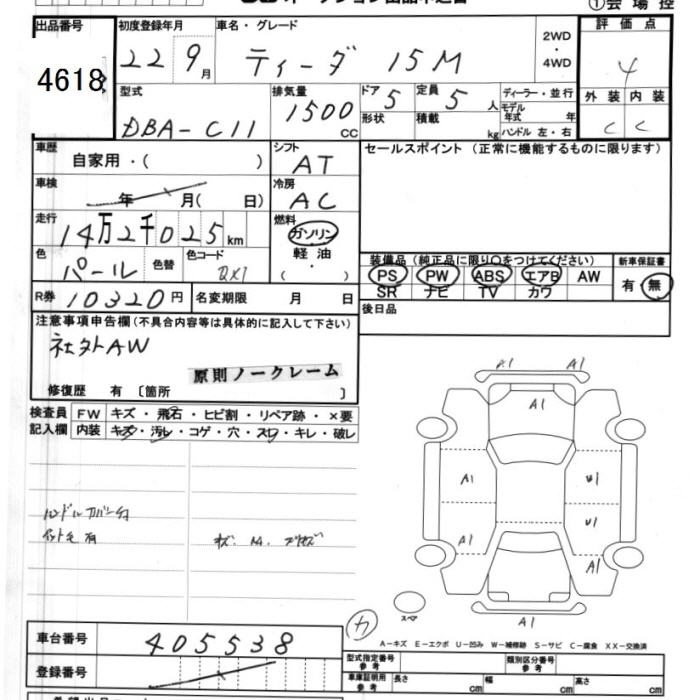 ①会場控
出品番号 初度登録年月 車名・グレード 2WD ・ 4WD 評価点
4618 22 9月 ティーダ 15M 4
型式 排気量 ドア 5 定員 5人 ディーラー・並行 外装 内装
DBA-C11 1500cc 形状 積載 kg モデル年式 年 C C
ハンドル 左・右
車歴 自家用・( ) シフト AT セールスポイント (正常に機能するものに限ります)
車検 年 月( 日) 冷房 AC
走行 14万2千025km 燃料 ガソリン
軽油
・
( )
色 パール 色替 色コード QX1 装備品 (純正品に限り○をつけてください) 新車保証書
PS PW ABS エアB AW 有・無
SR ナビ TV カワ
R券 10320円 名変期限 月 日 後日品
注意事項申告欄(不具合内容等は具体的に記入して下さい)
社外AW
原則ノークレーム
修復歴 有 〔箇所 〕
検査員 FW キズ・飛石・ヒビ割・リペア跡・×要
記入欄 内装 キズ・汚レ・コゲ・穴・スレ・キレ・破レ
A1 A1
A1
A1 U1
U1
A1 A1
A1
ハンドルカバー付
スペア
車台番号 405538
登録番号
A-キズ E-エクボ U-凹み W-補修跡 S-サビ C-腐食 XX-交換済
型式指定番号 参考 類別区分番号 参考
車庫証明 参考 長さ cm 幅 cm 高さ cm